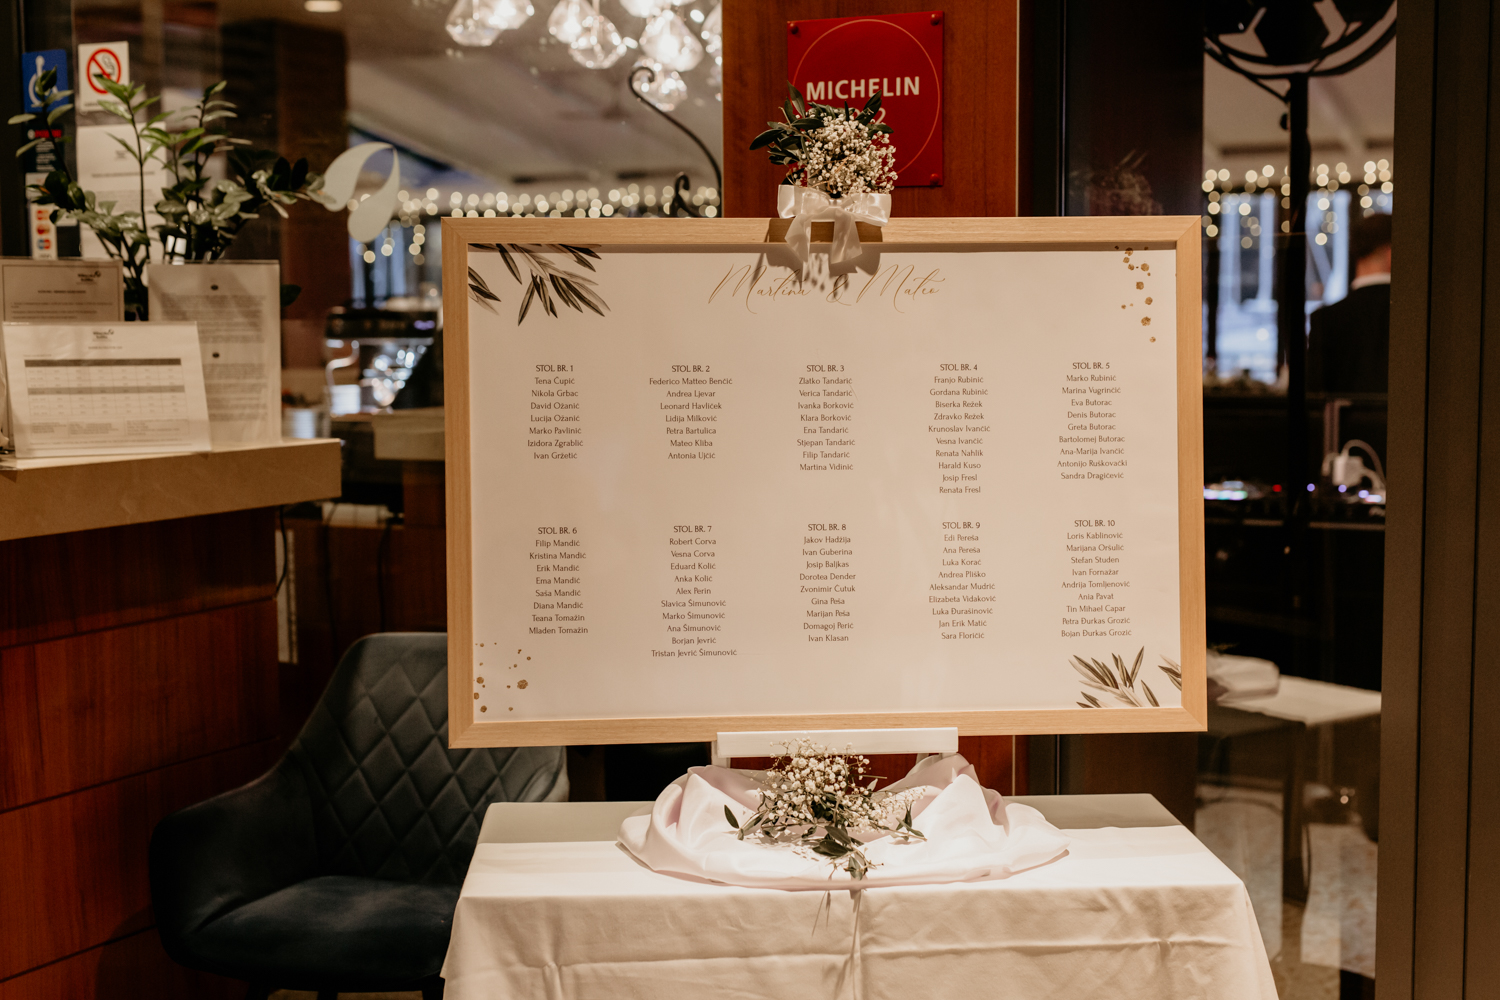 MICHELIN
Martina & Mateo
STOL BR. 1
Tena Čupić
Nikola Grbac
David Ožanić
Lucija Ožanić
Marko Pavlinić
Izidora Zgrablić
Ivan Gržetić
STOL BR. 2
Federico Matteo Benčić
Andrea Ljevar
Leonard Havliček
Lidija Milković
Petra Bartulica
Mateo Kliba
Antonia Ujčić
STOL BR. 3
Zlatko Tandarić
Verica Tandarić
Ivanka Borković
Klara Borković
Ena Tandarić
Stjepan Tandarić
Filip Tandarić
Martina Vidinić
STOL BR. 4
Franjo Rubinić
Gordana Rubinić
Biserka Režek
Zdravko Režek
Krunoslav Ivančić
Vesna Ivančić
Renata Nahlik
Harald Kuso
Josip Fresl
Renata Fresl
STOL BR. 5
Marko Rubinić
Marina Vugrinčić
Eva Butorac
Denis Butorac
Greta Butorac
Bartolomej Butorac
Ana-Marija Ivančić
Antonijo Ruškovački
Sandra Dragičević
STOL BR. 6
Filip Mandić
Kristina Mandić
Erik Mandić
Ema Mandić
Saša Mandić
Diana Mandić
Teana Tomažin
Mladen Tomažin
STOL BR. 7
Robert Corva
Vesna Corva
Eduard Kolić
Anka Kolić
Alex Perin
Slavica Šimunović
Marko Šimunović
Ana Šimunović
Borjan Jevrić
Tristan Jevrić Šimunović
STOL BR. 8
Jakov Hadžija
Ivan Guberina
Josip Baljkas
Dorotea Dender
Zvonimir Čutuk
Gina Peša
Marijan Peša
Domagoj Perić
Ivan Klasan
STOL BR. 9
Edi Pereša
Ana Pereša
Luka Korać
Andrea Pliško
Aleksandar Mudrić
Elizabeta Vidaković
Luka Đurašinović
Jan Erik Matic
Sara Floričić
STOL BR. 10
Loris Kablinović
Marijana Oršulić
Stefan Studen
Ivan Fornažar
Andrija Tomljenović
Ania Pavat
Tin Mihael Capar
Petra Đurkas Grozić
Bojan Đurkas Grozić